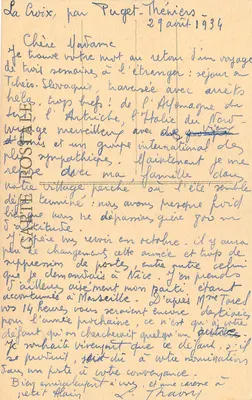 La Croix, par Puget-Théniers
29 août 1934
Chère Madame
Je trouve votre mot au retour d'un voyage
de trois semaines à l'étranger : séjour en
Tchéco-Slovaquie, traversée avec arrêts
hélas trop brefs : de l'Allemagne du
Sud, l'Autriche, l'Italie du Nord
voyage merveilleux avec
amis et un groupe international des
plus sympathiques. Maintenant je me
repose dans ma famille dans
notre village perché où l'été semble
déjà terminé : nous avons presque froid
nous ne dépassons guère 900 m
d'altitude.
J'espère vous revoir en octobre. il y aura
peu de changements cette année et trop de
suppression de poste entre autre celui
que je demandais à Nice. J'en prends
d'ailleurs aisément mon parti étant
accoutumée à Marseille. D'après Mme
vos 14 heures vous seraient encore destinées
pour l'année prochaine, ce n'est qu'à votre
défaut qu'on chercherait quelqu'un
Je souhaite vivement que ce défaut, s'il
se produit, soit dû à votre nomination
dans un poste à votre convenance.
Bien amicalement à vous, et une caresse à
petit Alain
CARTE POSTALE